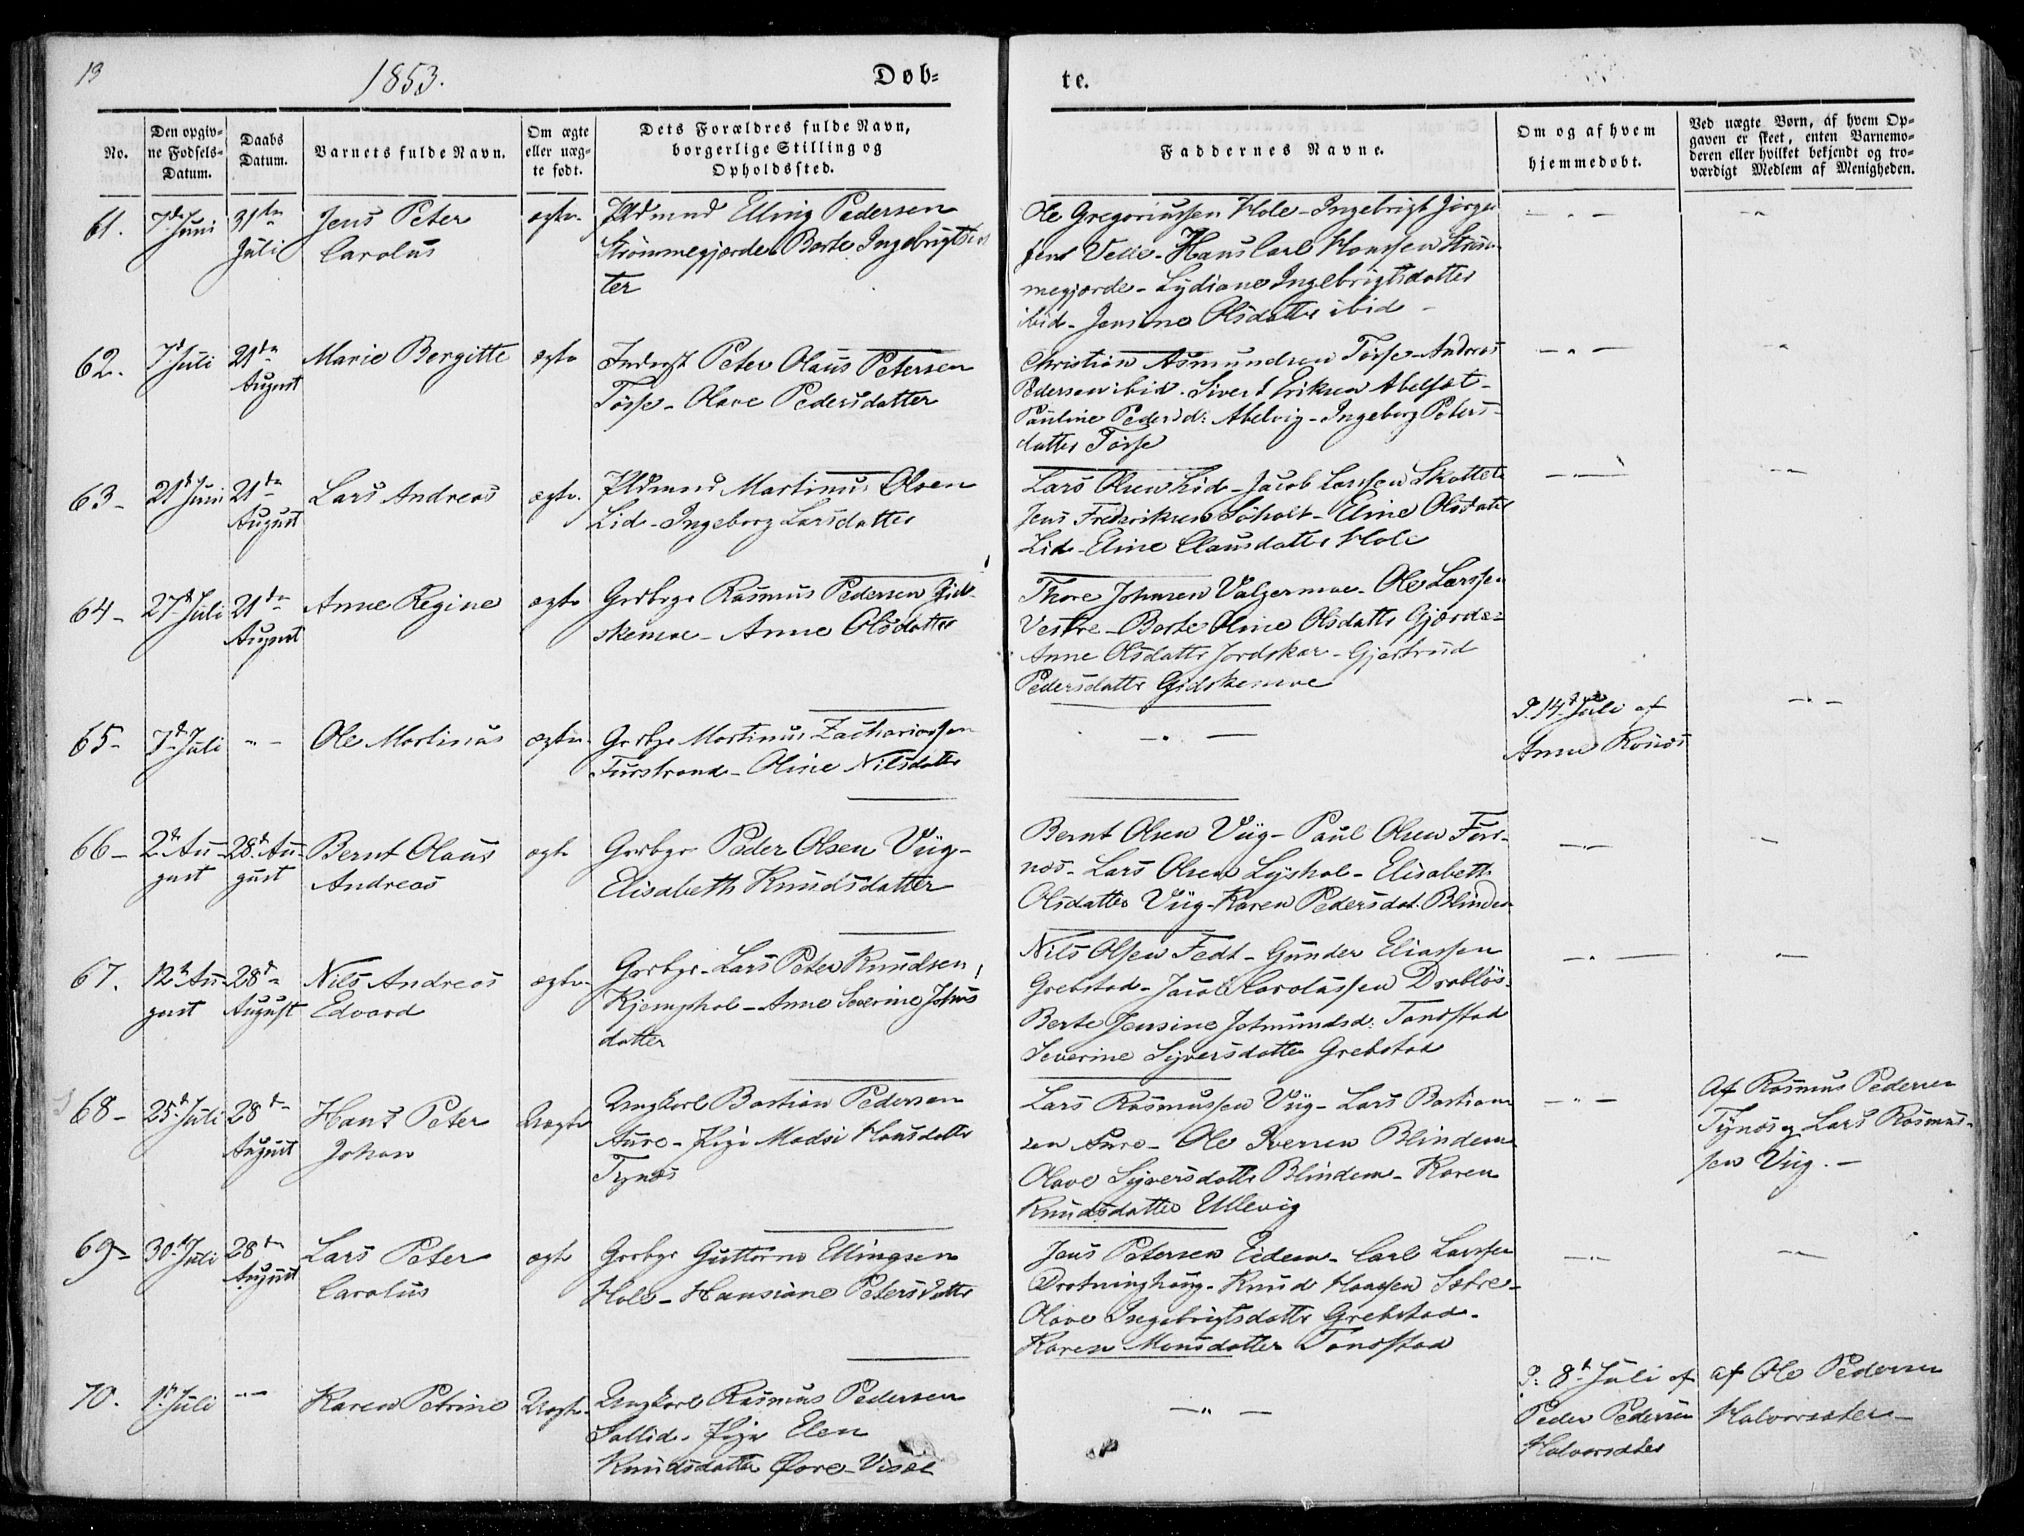 13
1853.
Døb-
te.
No.
Den opgiv-
ne Fødsels-
Datum.
Daabs
Datum.
Barnets fulde Navn.
Om ægte
eller uæg-
te født.
Dets Forældres fulde Navn,
borgerlige Stilling og
Opholdssted.
Faddernes Navne.
Om og af hvem
hjemmedøbt.
Ved uægte Børn, af hvem Op-
gaven er skeet, enten Barnemo-
deren eller hvilket bekjendt og tro-
værdigt Medlem af Menigheden.
61. 7d Juni 31te Juli
Jens Peter
Carolus
ægte
Pldmand Elling Pedersen
Strømmegjerde Berte Ingebrigtsdat
ter
Ole Gregoriussen Hole - Ingebrigt Jørgen
sens Velle - Hans Carl Hanssen Strøm
megjerde - Lydiane Ingebrigtsdatter
ibid - Jensine Olsdatter ibid -
62. 7d Juli 21de August
Marie Bergitte
ægte
Inderst Peter Olaus Petersen
Tøsse - Olave Pedersdatter
Christian Asmundsen Tøsse - Andreas
Pedersen ibid - Sivert Eriksen Abelsæt -
Pauline Pedersd: Abelvig - Ingeborg Peters-
datter Tøsse
63 - 21d Juni 21de August
Lars Andreas
ægte
Pldmand Martinus Olsen
Lid - Ingeborg Larsdatter
Lars Olsen Lid - Jacob Larssen Skottet
Jens Frederiksen Søholt - Eline Olsdatter
Lid - Eline Clausdatter Hole
64 - 27d Juli 21de August
Anne Regine
ægte
Grdbgr Rasmus Pedersen Gid-
skemoe - Anne Olsdatter
Thore Johnsen Valgermoe - Ole Larssen
Vestre - Berte Oline Olsdatter Gjærde -
Anne Olsdatter Jordskar - Gjertrud
Pedersdatter Gidskemoe
65 - 7d Juli
Ole Martinus
ægte
Grdbgr Martinus Zachariassen
Furstrand - Oline Nilsdatter
D. 14d Juli af
Anne Ronæs
66 - 2d Au-
gust 28d Au-
gust
Bernt Olaus
Andreas
ægte
Grdbgr Peder Olsen Viig -
Elisabeth Knudsdatter
Bernt Olsen Viig - Paul Olsen Føs-
næs - Lars Olsen Lyshol - Elisabeth
Olsdatter Viig - Karen Pedersdat. Blindem
67. 12te Au-
gust 28d August
Nils Andreas
Edvard
ægte
Grdbgr - Lars Peter Knudsen
Kjemphol - Anne Severine Johns
datter
Nils Olsen Fedt - Gunder Eliassen
Grebstad - Jacob Carolussen Drabløs -
Berte Jensine Johmundsd: Tandstad
Severine Syversdatter Grebstad
68 - 25d Juli 28d August
Hans Peter
Johan
Uægte
Ungkarl Bastian Pedersen
Aure - Pige Madsi Hansdatter
Tynæs
Lars Rasmussen Viig - Lars Bastian
sen Aure - Ole Iversen Blindem
Olave Syversdatter Blindem - Karen
Knudsdatter Ullevig
Af Rasmus Pedersen
Tynæs og Lars Rasmus-
sen Viig. -
69 - 30d Juli 28de August
Lars Peter
Carolus
ægte
Grdbgr Guttorm Ellingsen
Hole - Hansiane Petersdatter
Jens Petersen Eidem - Carl Larssen
Drotninghaug - Knud Hanssen Sætre -
Olave Ingebrigtsdatter Grebstad -
Karen Monsdatter Tandstad
70. 1te Juli
Karen Petrine
Uægte
Ungkarl Rasmus Pedersen
Sollid - Pige Elen
Knudsdatter Øvre - Visæt
D: 8d Juli af
Peder Pedersen
Halvorsæter
af Ole Pedersen
Halvorsæter -